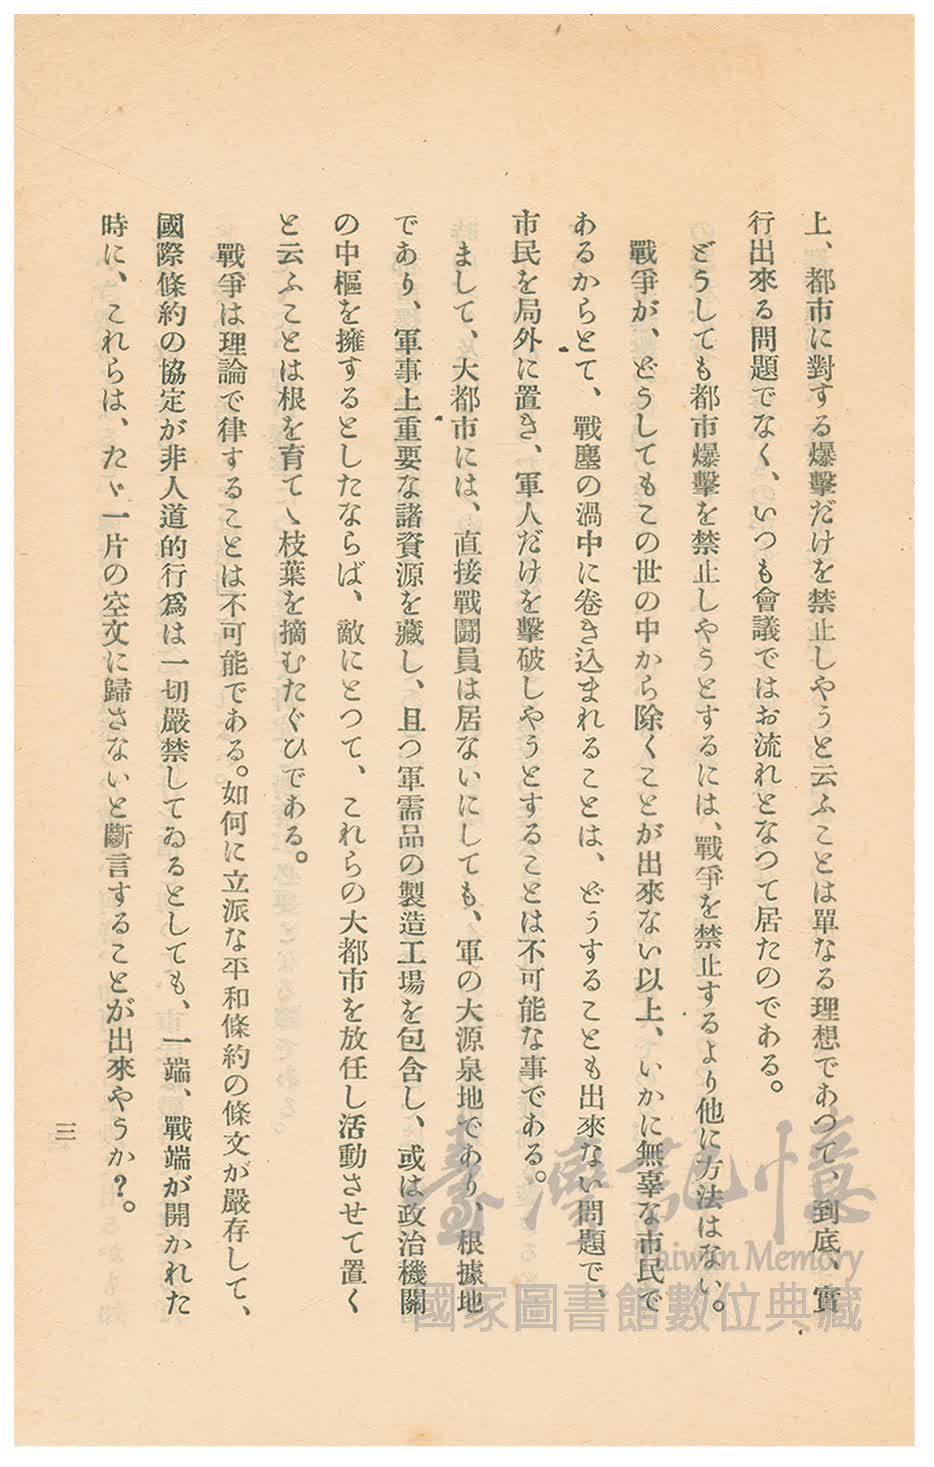 上、都市に對する爆擊だけを禁止しやうと云ふことは單なる理想であつて、到底、實
行出來る問題でなく、いつも會議ではお流れとなつて居たのである。
どうしても都市爆擊を禁止しやうとするには、戰爭を禁止するより他に方法はない。
戰爭が、どうしてもこの世の中から除くことが出來ない以上、いかに無辜な市民で
あるからとて、戰塵の渦中に卷き込まれることは、どうすることも出來ない問題で、
市民を局外に置き、軍人だけを擊破しやうとすることは不可能な事である。
まして、大都市には、直接戰鬪員は居ないにしても、軍の大源泉地であり、根據地
であり、軍事上重要な諸資源を藏し、且つ軍需品の製造工場を包含し、或は政治機關
の中樞を擁するとしたならば、敵にとつて、これらの大都市を放任し活動させて置く
と云ふことは根を育てゝ枝葉を摘むたぐひである。
戰爭は理論で律することは不可能である。如何に立派な平和條約の條文が嚴存して、
國際條約の協定が非人道的行爲は一切嚴禁してゐるとしても、一端、戰端が開かれた
時に、これらは、たゞ一片の空文に歸さないと斷言することが出來やうか?。
三
臺灣記憶
Taiwan Memory
國家圖書館數位典藏